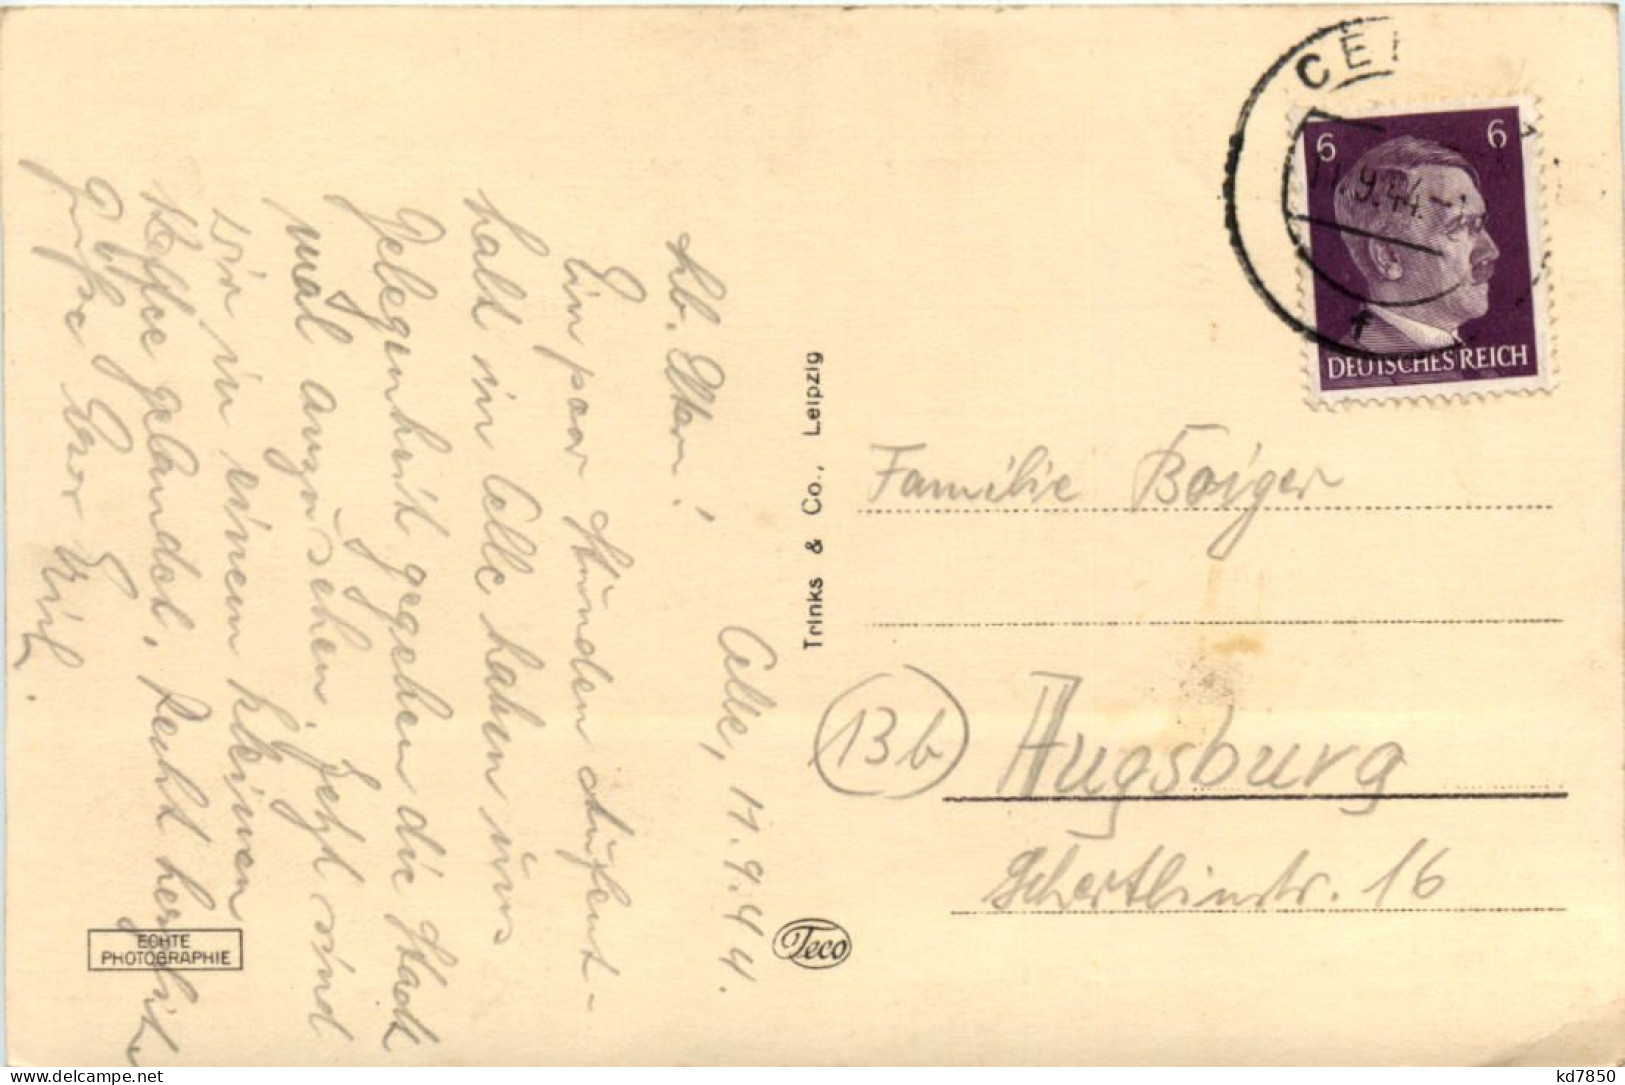 Celle, 11.9.44.
Lb. Eltern!
Ein paar Stunden Aufent-
halt in Celle haben uns
Gelegenheit gegeben die Stadt
mal anzusehen. Jetzt sind
wir in einem kleinen
Kaffee gelandet. Recht herzlich
Grüße Euer
CE
11.9.44.
6 6
DEUTSCHES REICH
Trinks & Co., Leipzig
Familie Boiger
13b Augsburg
Schertlinstr. 16
Teco
ECHTE
PHOTOGRAPHIE
kd7850